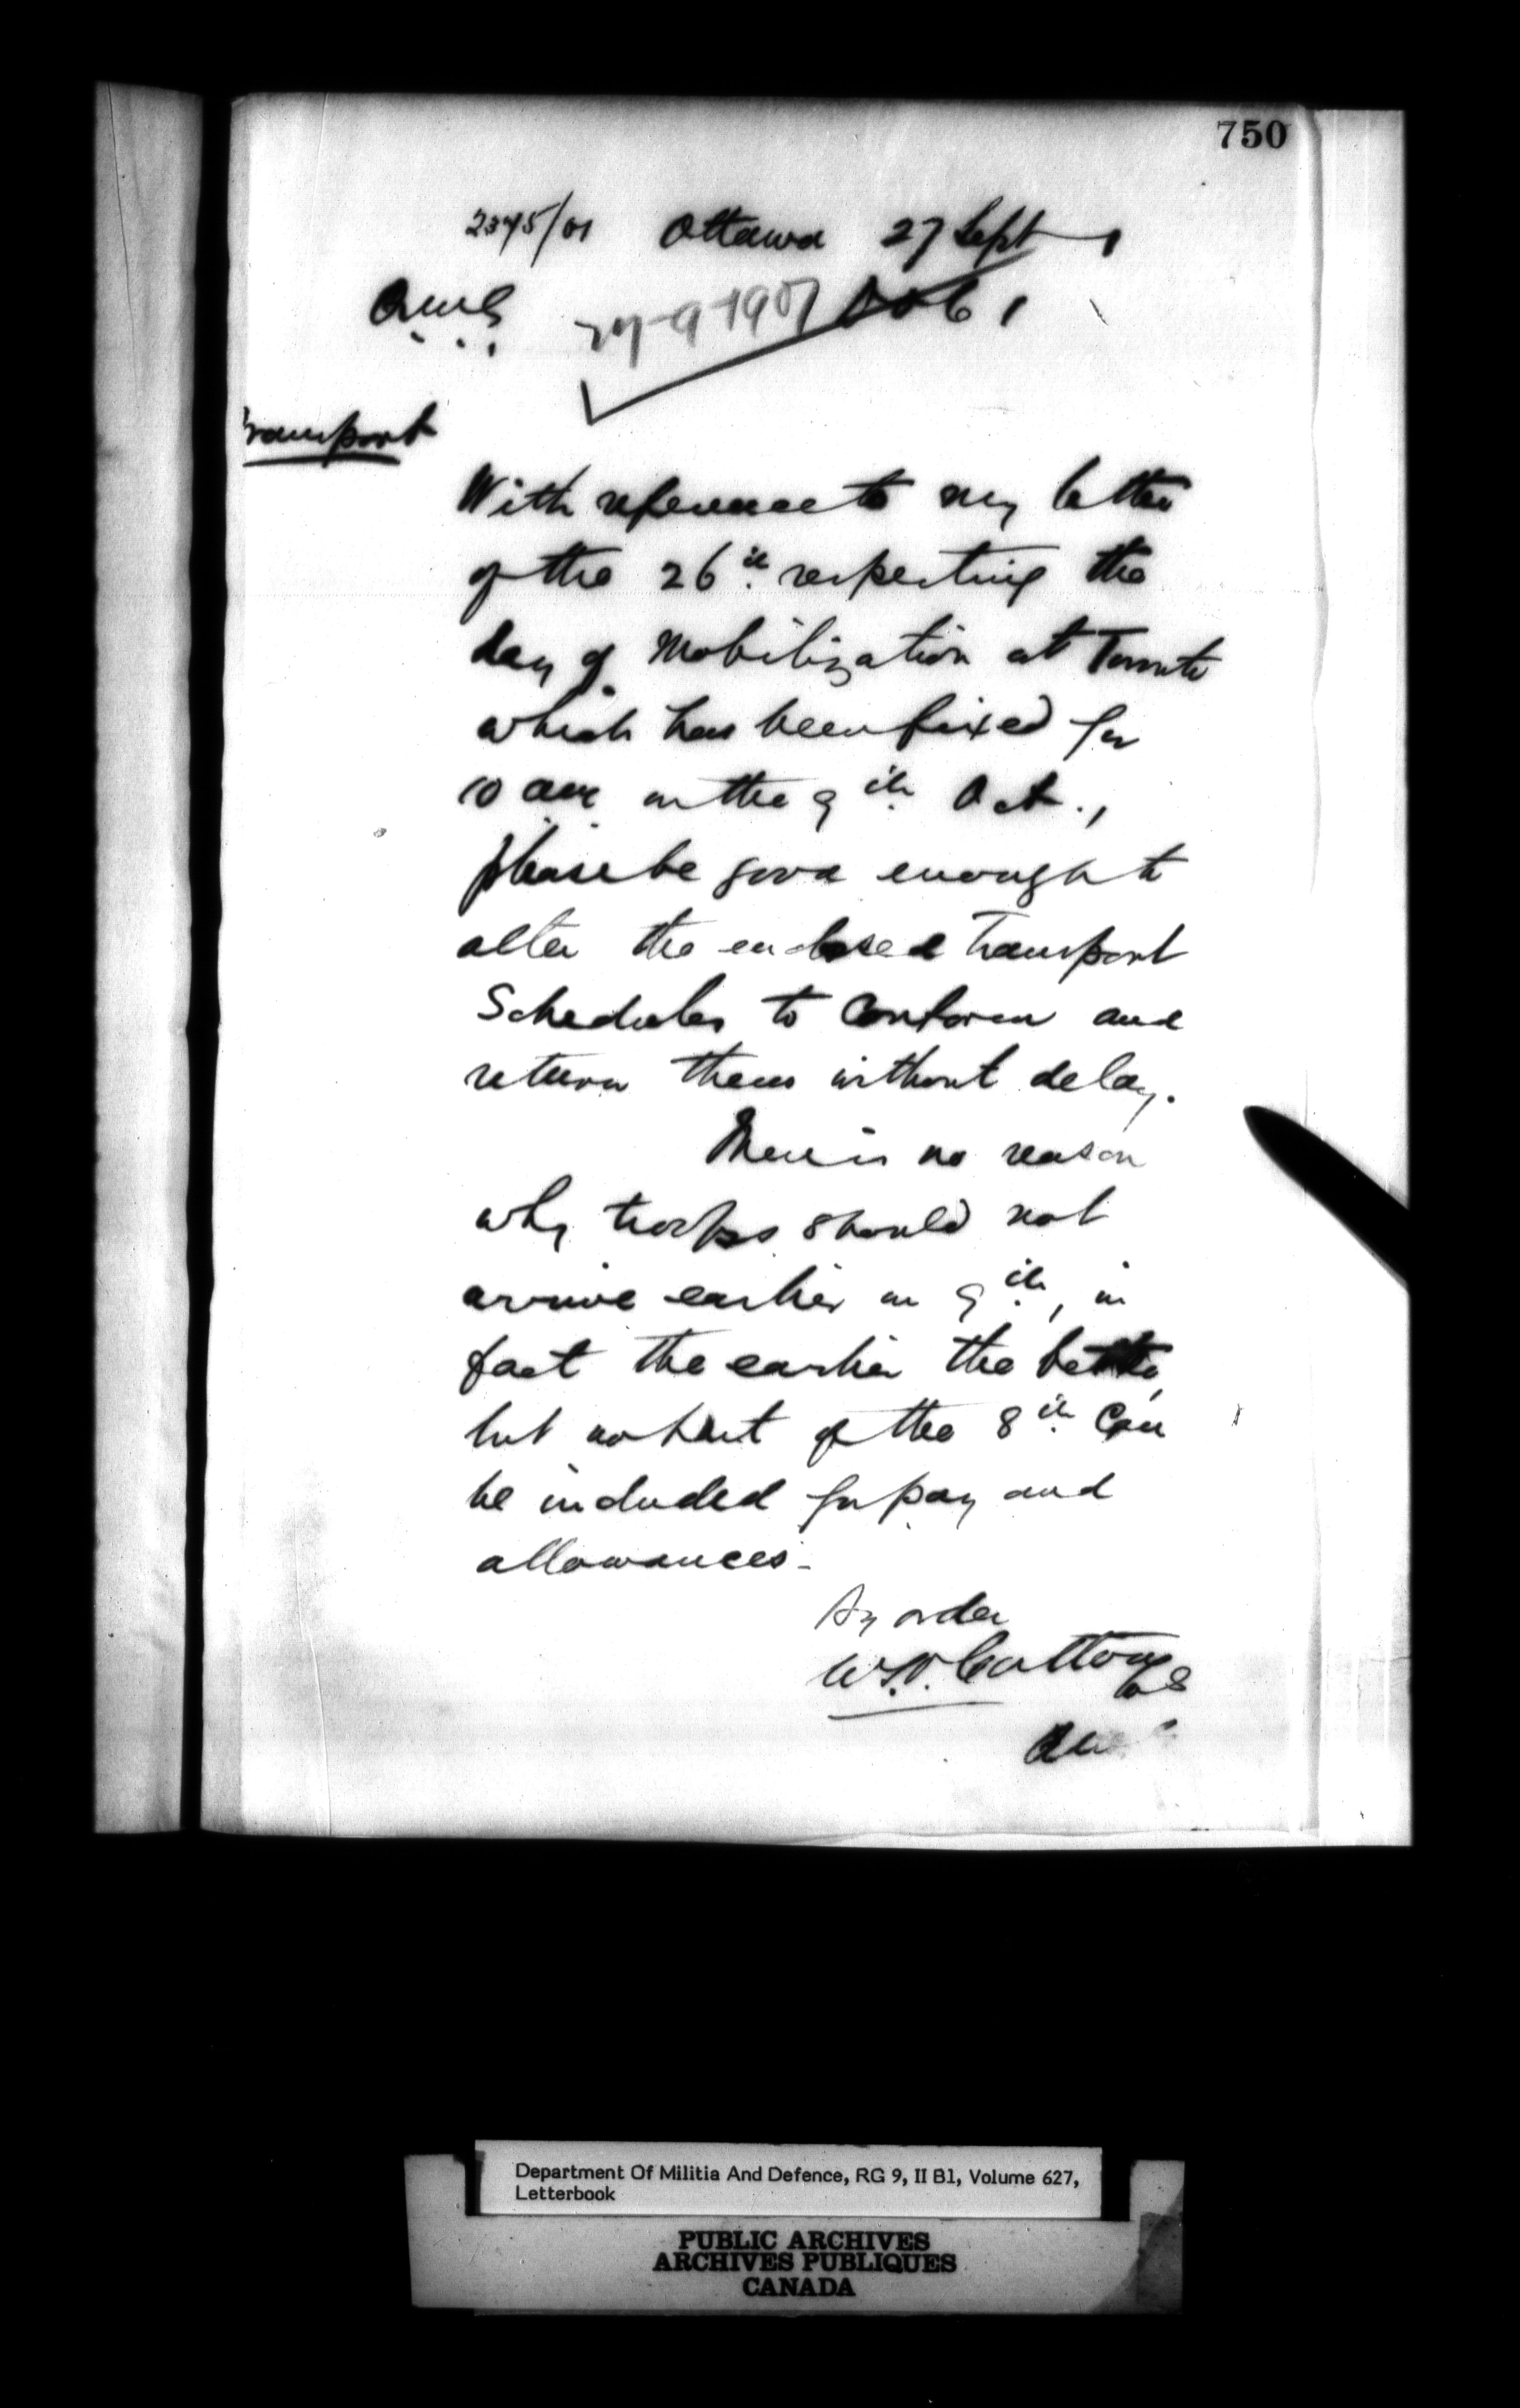 750
2375/01 Ottawa 27 Sept 1
QMG 27-9-1901
Transport
With reference to my letter
of the 26th respecting the
day of Mobilization at Toronto
which has been fixed for
10 am on the 9th Oct.,
please be good enough to
alter the enclosed Transport
Schedules to conform and
return them without delay.
There is no reason
why troops should not
arrive earlier on 9th, in
fact the earlier the better,
but no part of the 8th can
be included for pay and
allowances -
By order
Department Of Militia And Defence, RG 9, II B1, Volume 627,
Letterbook
PUBLIC ARCHIVES
ARCHIVES PUBLIQUES
CANADA